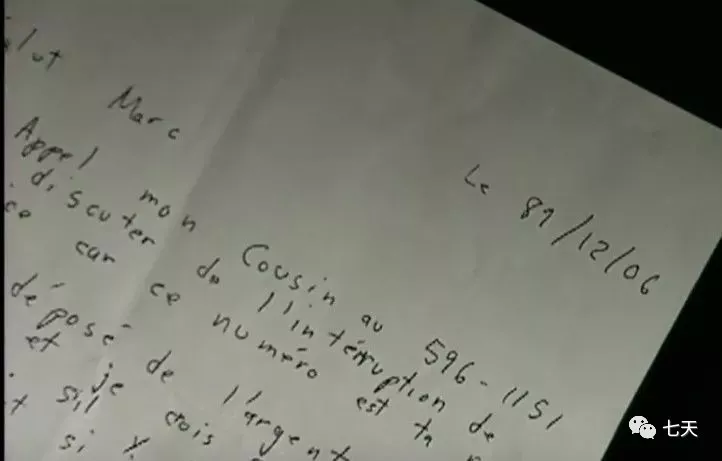 Le 89/12/06
Marc
Appel mon Cousin au 596-1151
discuter de l'intérruption de
car ce numéro est ta
déposé de l'argent
et je crois
sil
si
七天